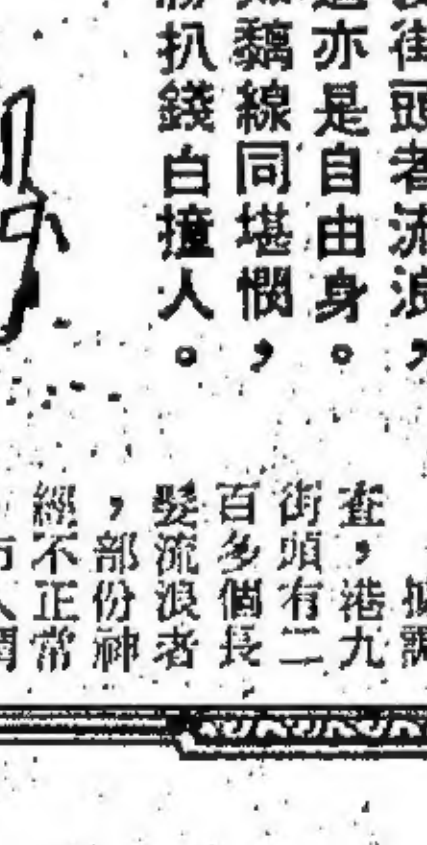 街頭者流浪，
亦是自由身。
黐線同堪憫，
扒錢白撞人。
據調
查，港九
街頭有二
百多個長
髮流浪者
，部份神
經不正常